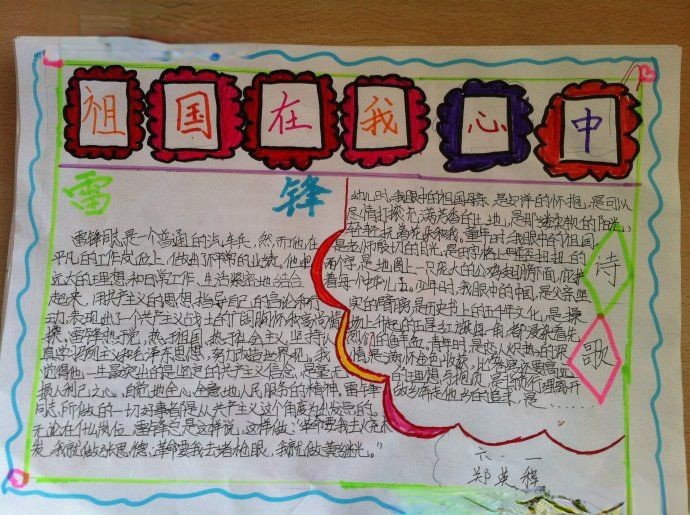 祖国在我心中
雷锋
雷锋同志是一个普通的汽车兵，然而他在
平凡的工作岗位上，他做出了不平常的业绩，他由
远大的理想和日常工作、生活紧密地结合
起来，用共产主义的思想，指导自己的言论和行
动，表现出了个共产主义战士的广阔胸怀和高尚情
操，雷锋热爱党，热爱祖国，热爱社会主义，坚持
真学习列主义和毛泽东思想，努力改造世界观，我
觉得他一生最突出的是坚定的共产主义信念，是毫无
损人利己之心，自觉地全心全意地人民服务的精神，雷锋
同志，所做的一切好事都是从共产主义这个角度为出发点的，
无论在什么岗位，雷锋总是这样说，这样做：“革命要我去火
发，我就做张思德，革命要我去堵枪眼，我就做黄继光。”
幼儿时，我眼中的祖国母亲，是安详的怀抱，是可以
尽情打滚充满芳香的土地，是那缕柔软的阳光，
轻轻抚着花朵和我。童年时，我眼中的祖国，
是老师殷切的目光，是田字格上
两个字，是地图上一只庞大的公鸡翅膀下面，庇护
着每个中华儿女。少年时，我眼中的中国，是父亲坚
实的臂膀，是历史书上的五千年文化，是操
场上升起的五星红旗
烈们的鲜血，青年时，是
诗
歌
六·一
郑英程